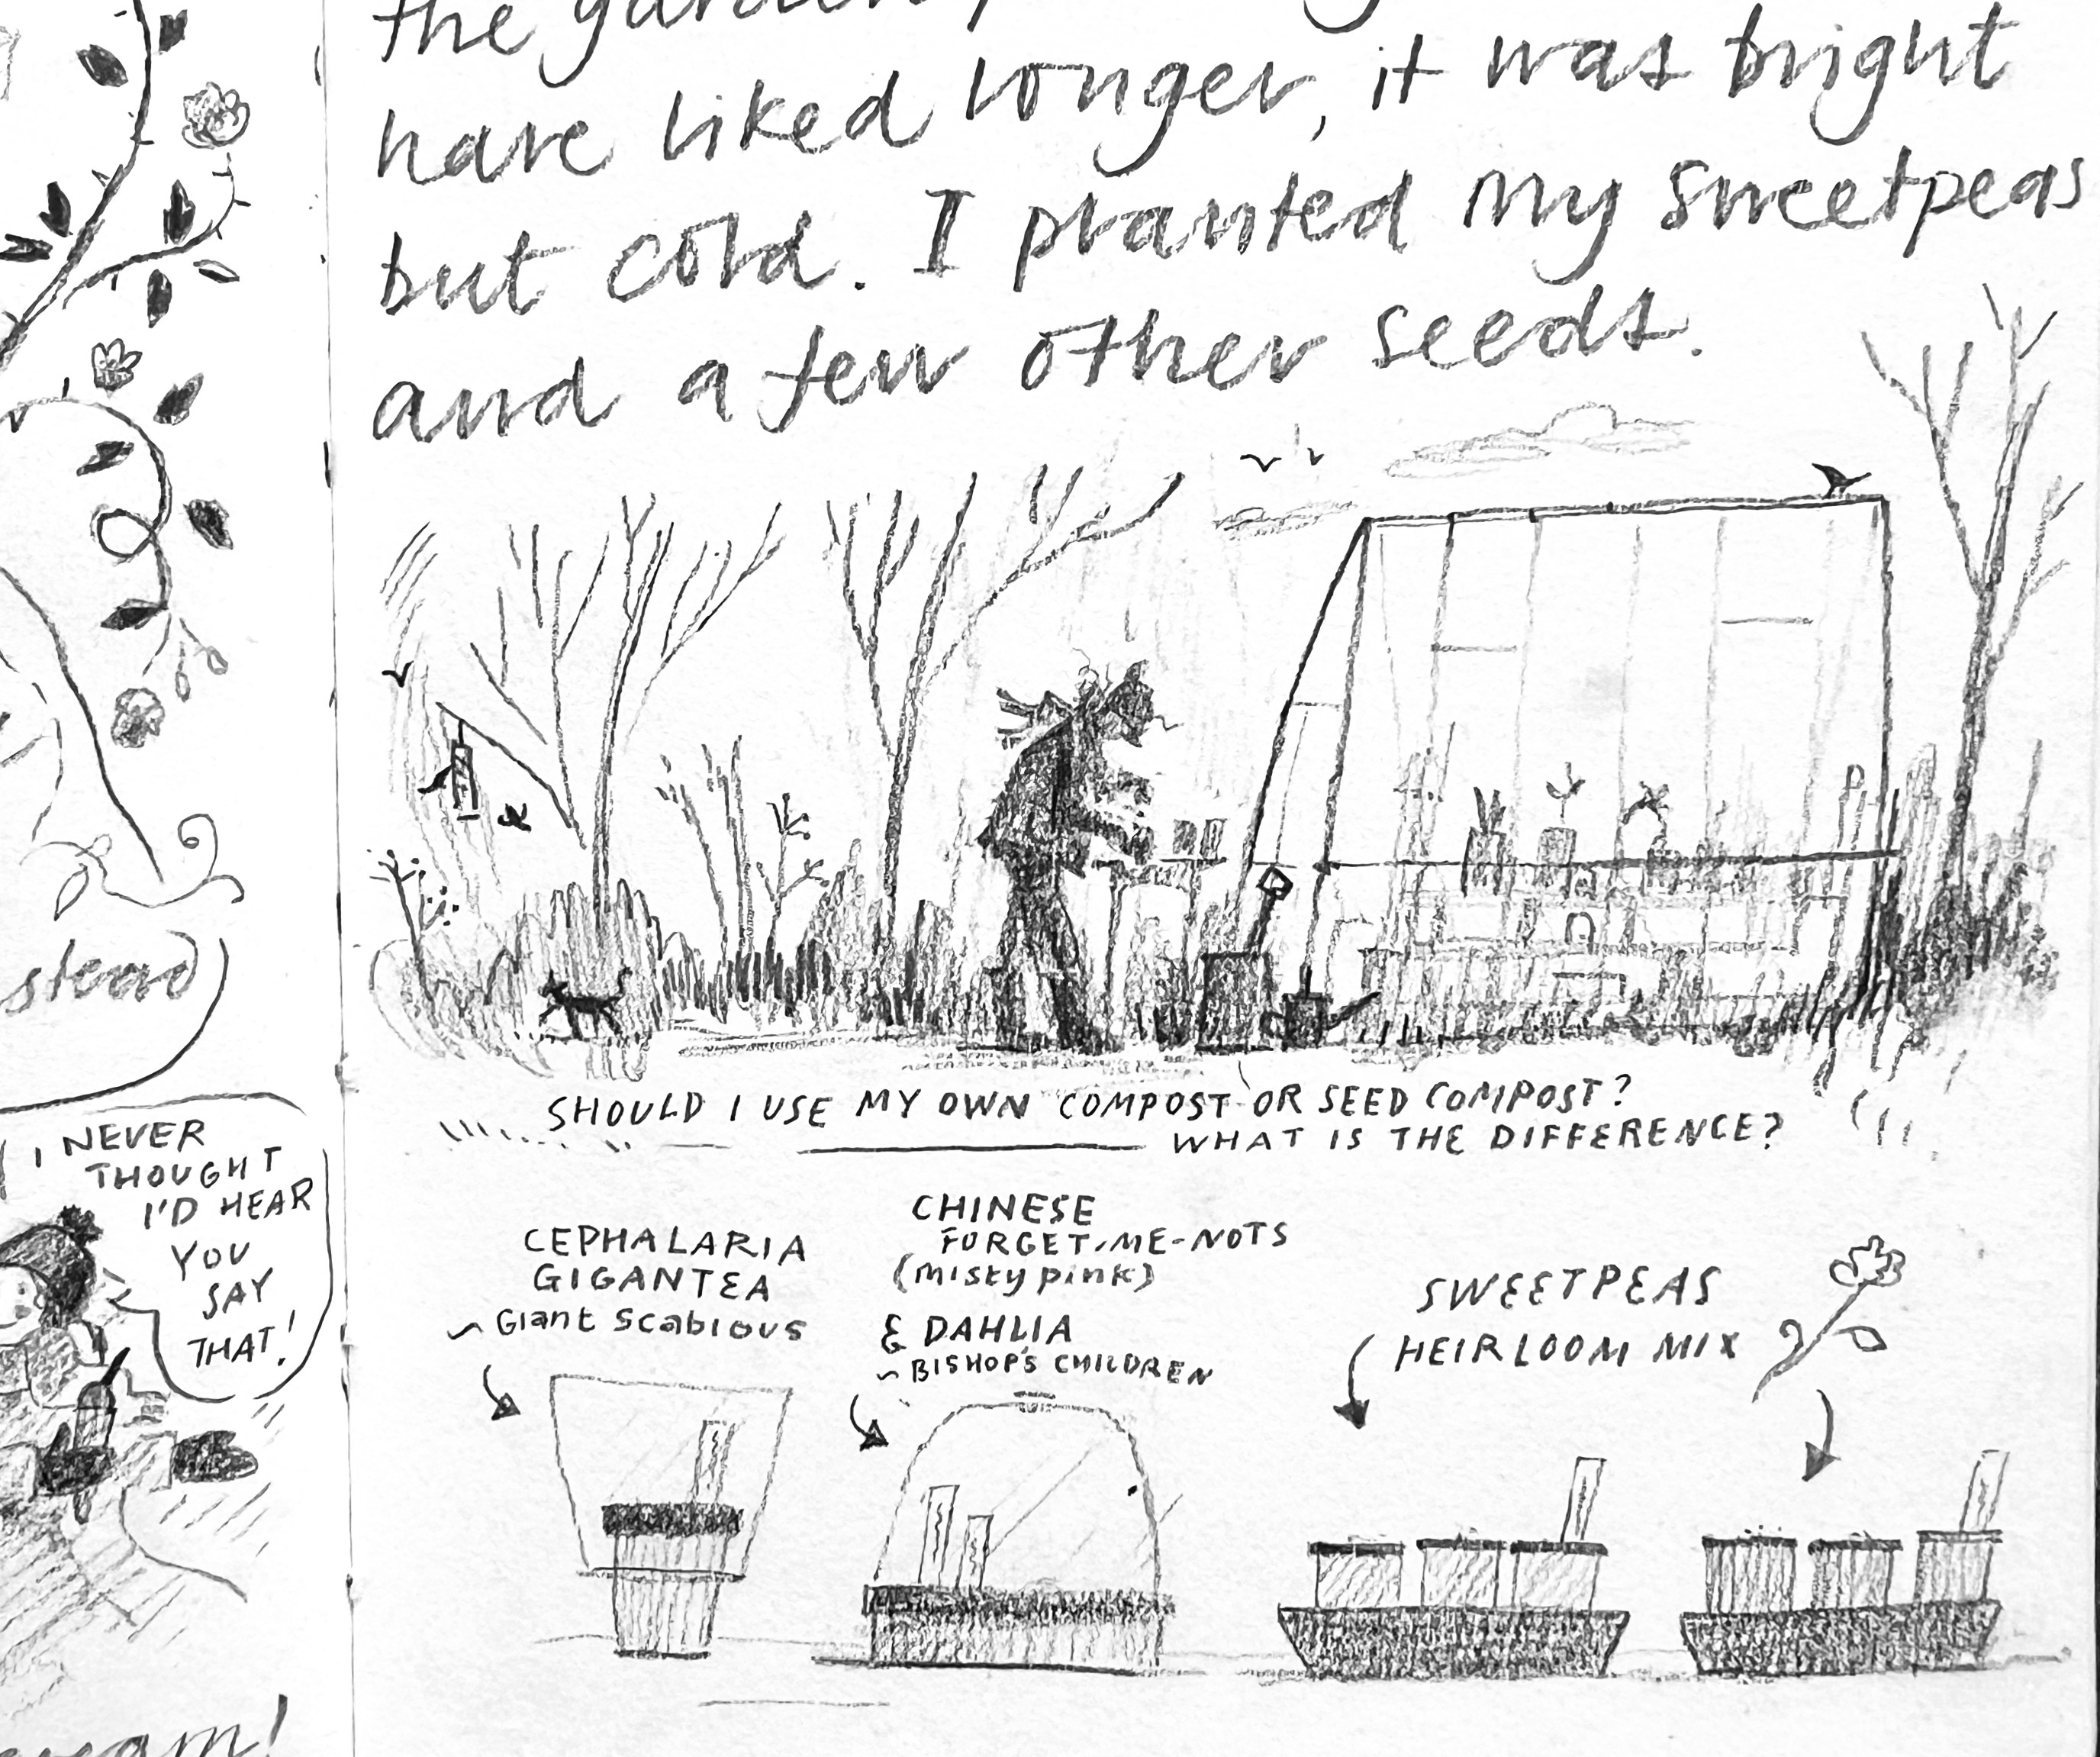 the garden
have liked longer, it was bright
but cold. I planted my sweetpeas
and a few other seeds.
SHOULD I USE MY OWN COMPOST OR SEED COMPOST?
WHAT IS THE DIFFERENCE?
CEPHALARIA
GIGANTEA
~ Giant Scabious
CHINESE
FORGET-ME-NOTS
(Misty pink)
& DAHLIA
~ BISHOP'S CHILDREN
SWEETPEAS
HEIRLOOM MIX
stead
I NEVER
THOUGHT
I'D HEAR
YOU
SAY
THAT!